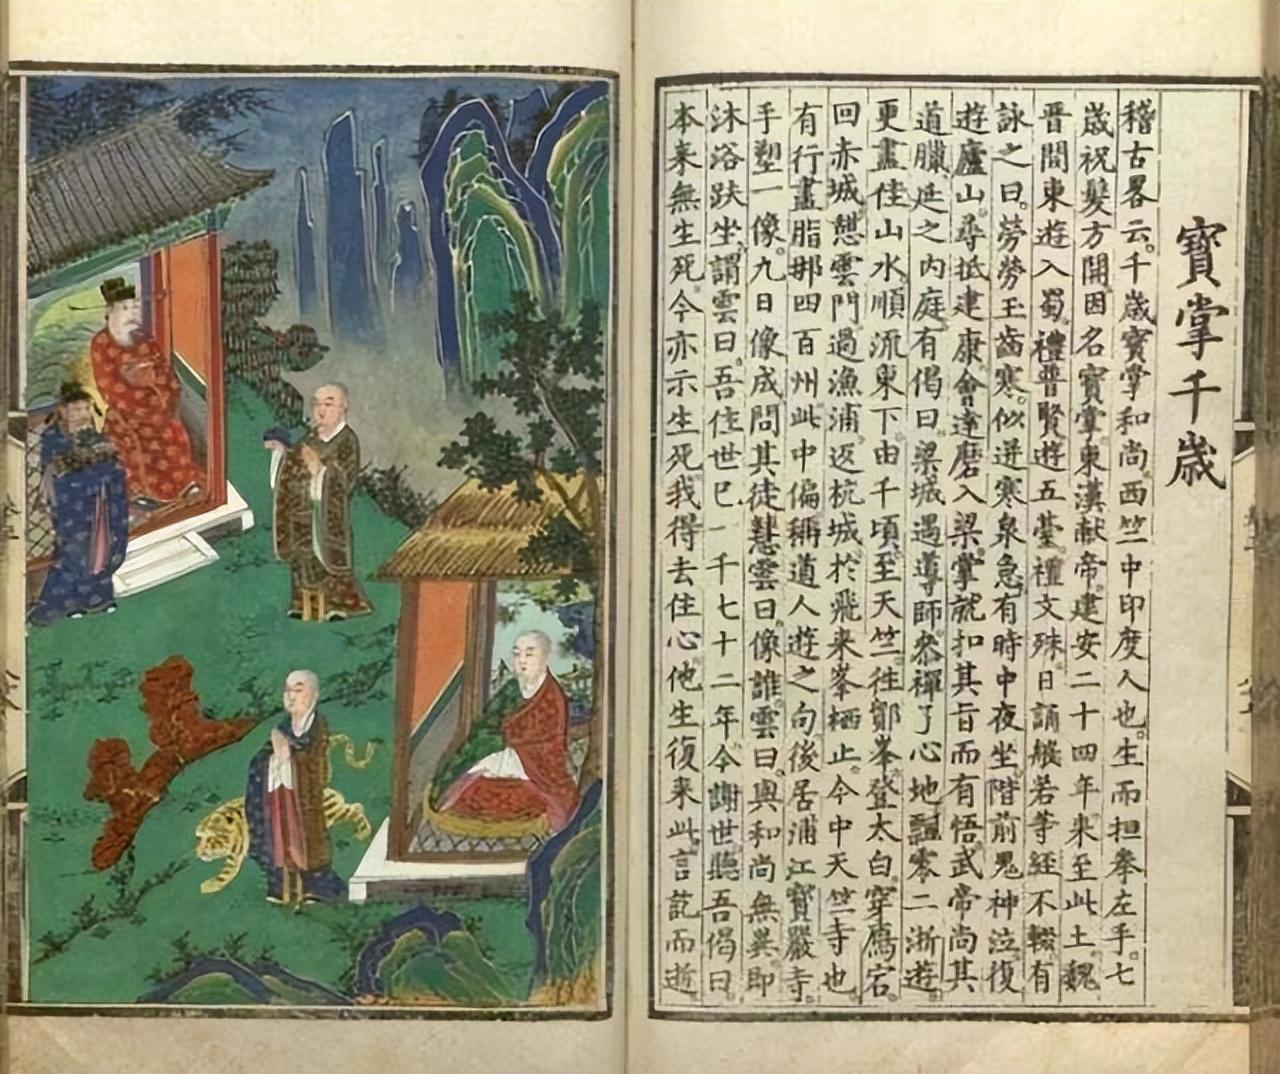 寶掌千歲
稽古畧云。千歲寶掌和尚。西竺中印度人也。生而担拳左手。七
歲祝髮方開。因名寶掌。東漢献帝。建安二十四年。来至此土。魏
晋間東遊入蜀。禮普賢。遊五臺。禮文殊。日誦般若等經不輟。有
詠之曰。勞勞玉齒寒。似迸寒泉急。有時中夜坐。階前鬼神泣。復
遊廬山。尋抵建康。會達磨入梁。掌就扣其旨而有悟。武帝尚其
道臘。延之内庭。有偈曰。梁城遇導師。叅禪了心地。飄零二浙遊。
更盡佳山水。順流東下。由千頃。至天竺。徃鄮峯。登太白。穿鴈宕。
回赤城。憩雲門。過漁浦。返杭城。於飛来峯栖止。今中天竺寺也。
有行盡脂那四百州。此中偏稱道人遊之句。後居浦江寶嚴寺。
手塑一像。九日像成。問其徒慧雲曰。像誰。雲曰。與和尚無異。即
沐浴趺坐。謂雲曰。吾住世已一千七十二年。今謝世。聽吾偈曰
本来無生死。今亦示生死。我得去住心。他生復来此。言訖而逝。